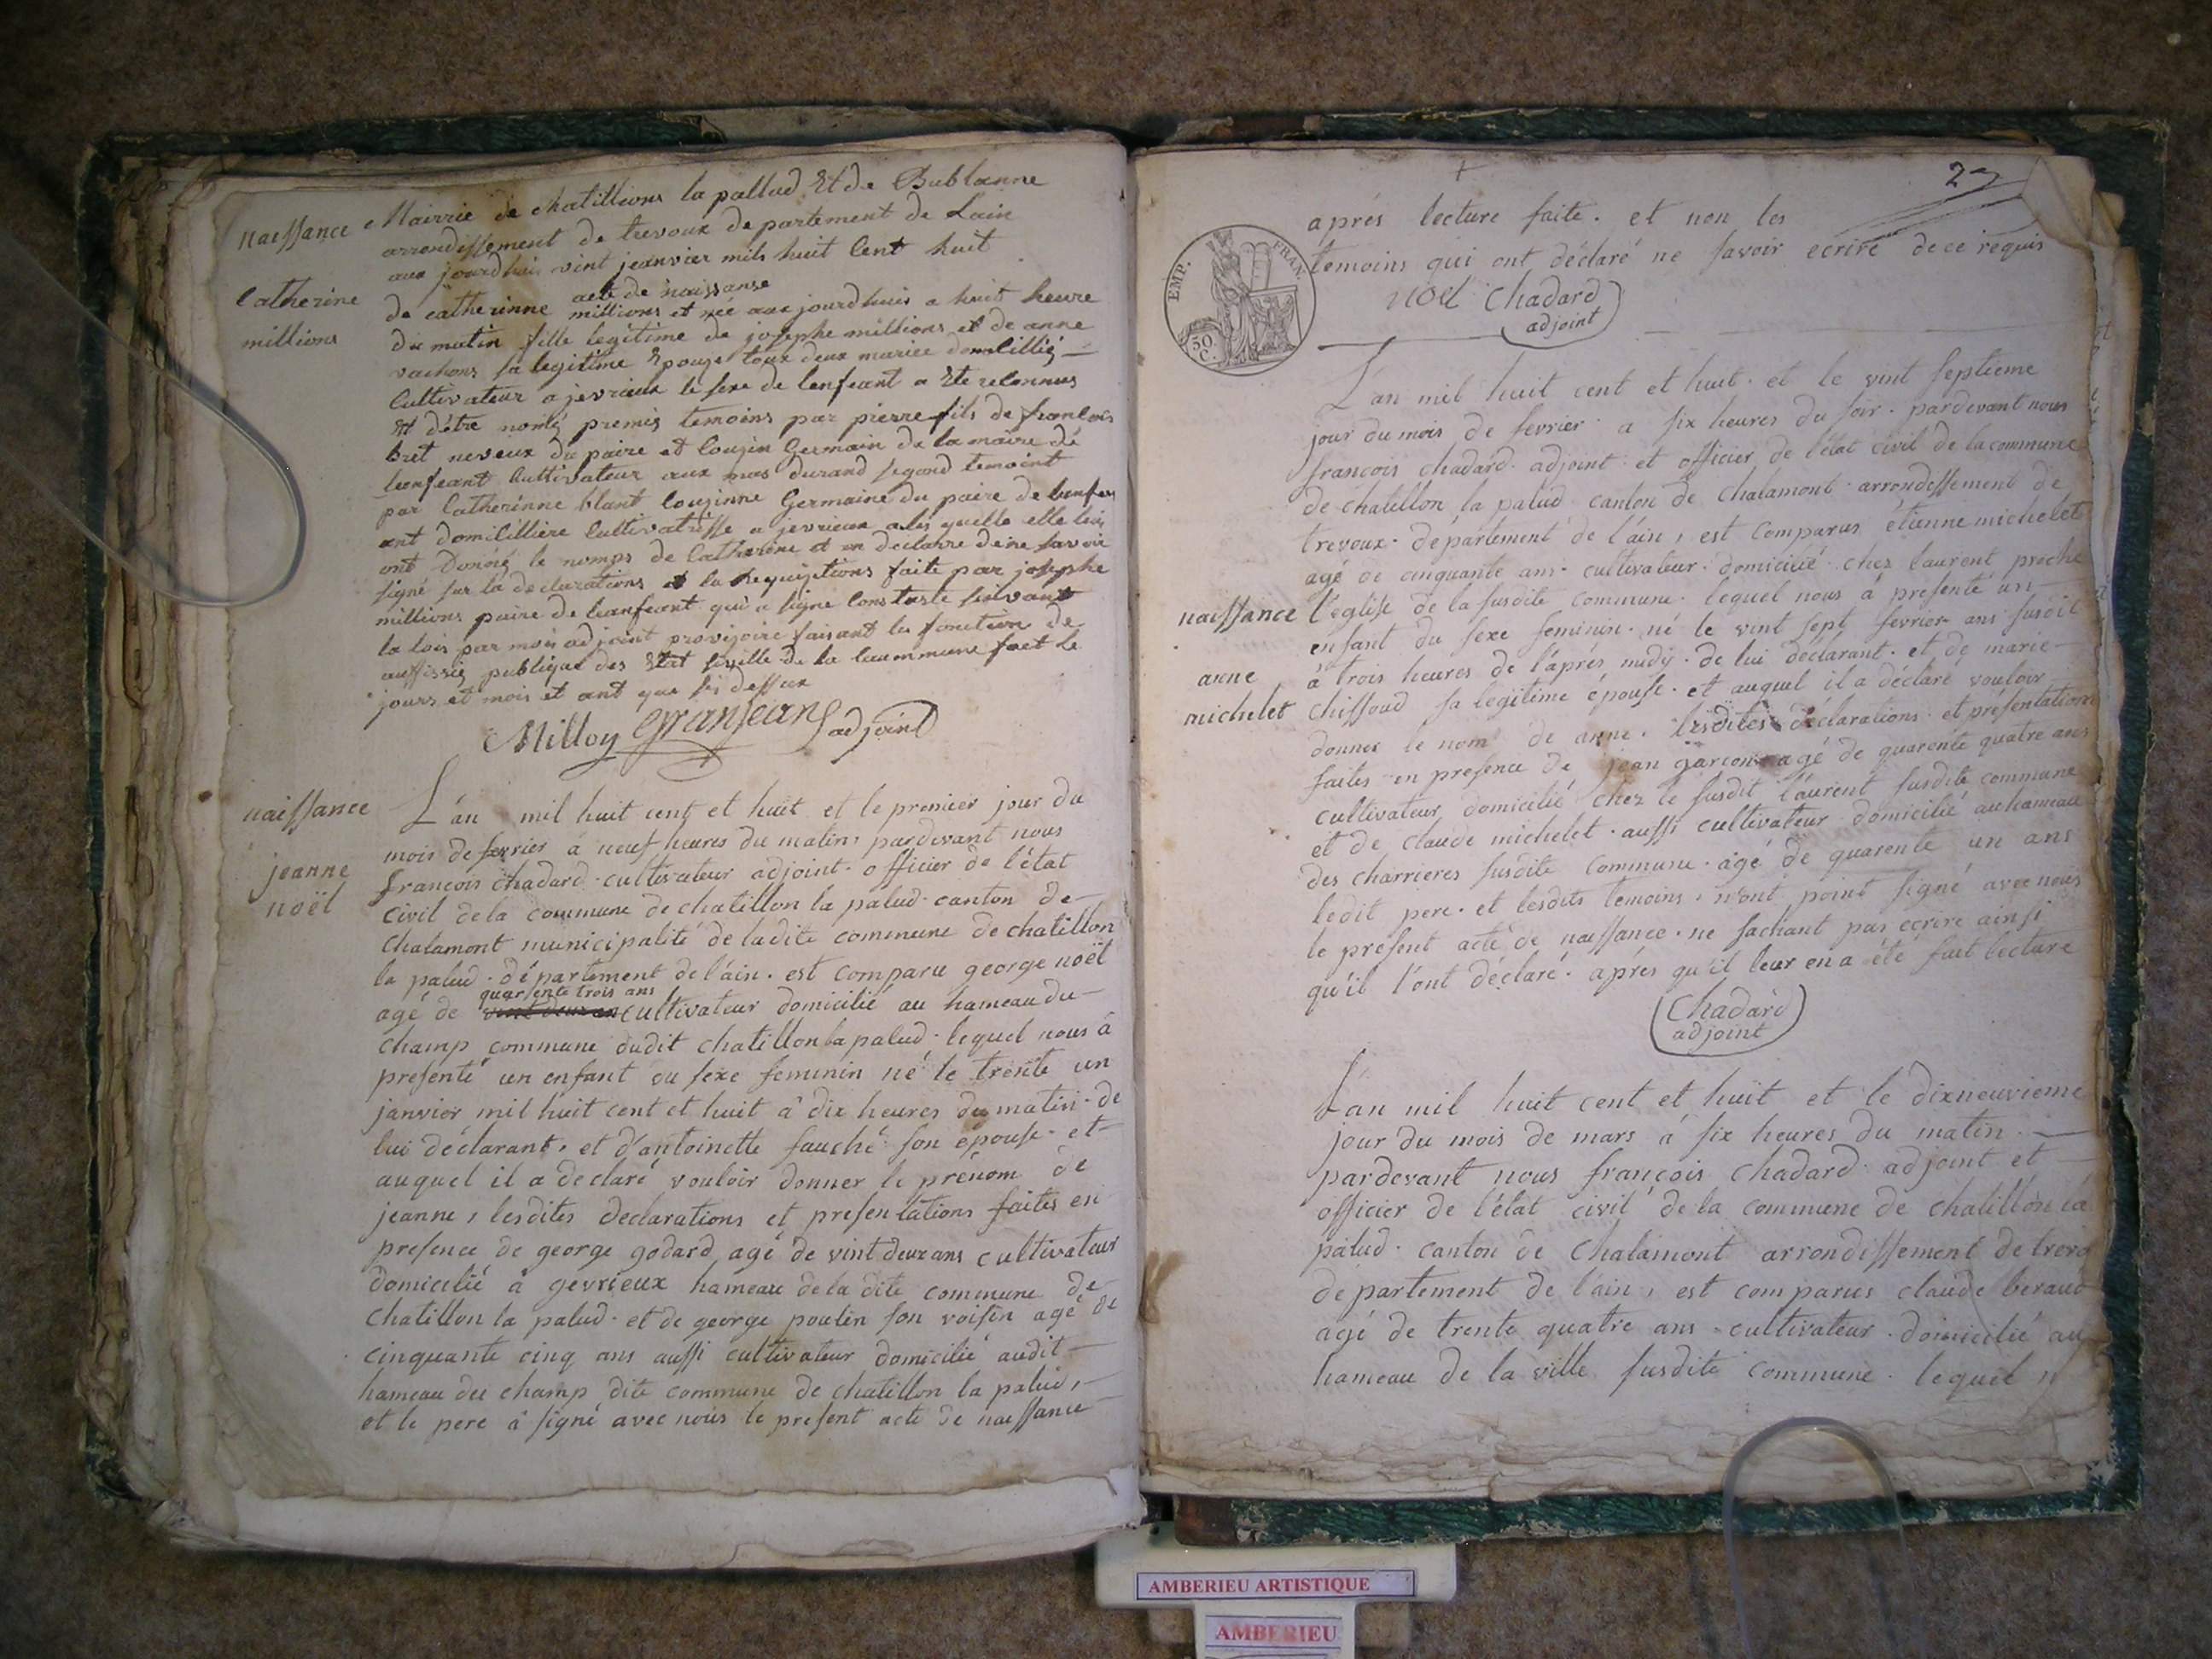 naissance
Catherine
millions
Mairrie de chatillions la pallud Et de Bublanne
arrondissement de trevoux departement de Lain
aux jourdhui vint jeanvier mils huit Cent huit
acte de naissanse
de catherinne millions et née aux jourdhuis a huit heure
du matin fille legitime de josephe millions et de anne
vachons sa legitime Epouge toux deux mariee domicillié
Cultivateur a jevrieux le sexe de lenfeant a Ete reconnus
Et dêtre nomé premié temoins par pierre fils de francois
bret neveux du paire et Cougin Germain de la maire de
lienfeant Cultivateur aux mas durand segond temoint
par Catherinne blant Couginne Germaine du paire de lienfea
ant domicilliere Cultivatrisse a jevrieux a les quelle elle lui
ont Donné le nomps de Catherine et on declarre de ne savoir
signé sur la declarations et la Requigitions faite par josephe
millions paire de lianfeant qui a signe Constaste suivant
la lois par mois adjoint provigoire faisant les fonction de
auffissié publique des Etat siville de la Caummune fact le
jours et mois et ant que si dessux
Milloy Granjean adjoint
naissance
jeanne
noël
L'an mil huit cent et huit et le premier jour du
mois de fevrier a neuf heures du matin pardevant nous
francois chadard cultivateur adjoint officier de l'état
civil dela commune de chatillon la palud canton de
Chalamont municipalité de ladite commune de chatillon
la palud département de l'ain. est comparu george noël
quarsente trois ans
agé de cultivateur domicilié au hameau du
champ commune dudit chatillon la palud. lequel nous à
presenté un enfant du sexe feminin né le trente un
janvier mil huit cent et huit à dix heures du matin de
lui déclarant, et d'antoinette fauché son épouse et
auquel il a declaré vouloir donner le prénom de
jeanne, lesdites declarations et presentations faites en
presence de george godard agé de vint deux ans cultivateur
domicilié à gevrieux hameau de la dite commune de
chatillon la palud. et de george poutin son voisin agé de
cinquante cinq ans aussi cultivateur domicilié audit
hameau du champ dite commune de chatillon la palud,
et le pere à signé avec nous le present acte de naissance
27
EMP. FRAN.
50 C.
aprés lecture faite. et non les
temoins qui ont déclaré ne savoir ecrire de ce requis
noel Chadard
adjoint
L'an mil huit cent et huit. et le vint septieme
jour du mois de fevrier a six heures du soir. pardevant nous
francois chadard adjoint et officier de l'état civil de la commune
de chatillon la palud canton de Chalamont arrondissement de
trevoux département de l'ain, est comparus étienne michelet
agé de cinquante ans cultivateur domicilié chez laurent proche
naissance
anne
michelet
l'eglise de la susdite commune. lequel nous à presenté un
enfant du sexe feminin. né le vint sept fevrier ans susdit
à trois heures de l'aprés midy. de lui déclarant. et de marie
chissoud sa legitime épouse. et auquel il a déclaré vouloir
donner le nom de anne. lesdites déclarations et présentations
faites en presence de jean garcon agé de quarente quatre ans
cultivateur domicilié chez le susdit laurent susdite commune
et de claude michelet. aussi cultivateur domicilié au hameau
des charrieres susdite commune. agé de quarente un ans
ledit pere. et lesdits temoins, n'ont point signé avec nous
le present acte de naissance. ne sachant pas ecrire ainsi
qu'il l'ont déclaré. aprés qu'il leur en a été fait lecture
Chadard
adjoint
L'an mil huit cent et huit et le dixneuvieme
jour du mois de mars à six heures du matin.
pardevant nous françois Chadard adjoint et
officier de l'état civil de la commune de chatillon la
palud. canton de Chalamont arrondissement de trevo
departement de l'ain, est comparus claude beraud
agé de trente quatre ans cultivateur. domicilié au
hameau de la ville susdite commune. lequel n
AMBERIEU ARTISTIQUE
AMBERIEU